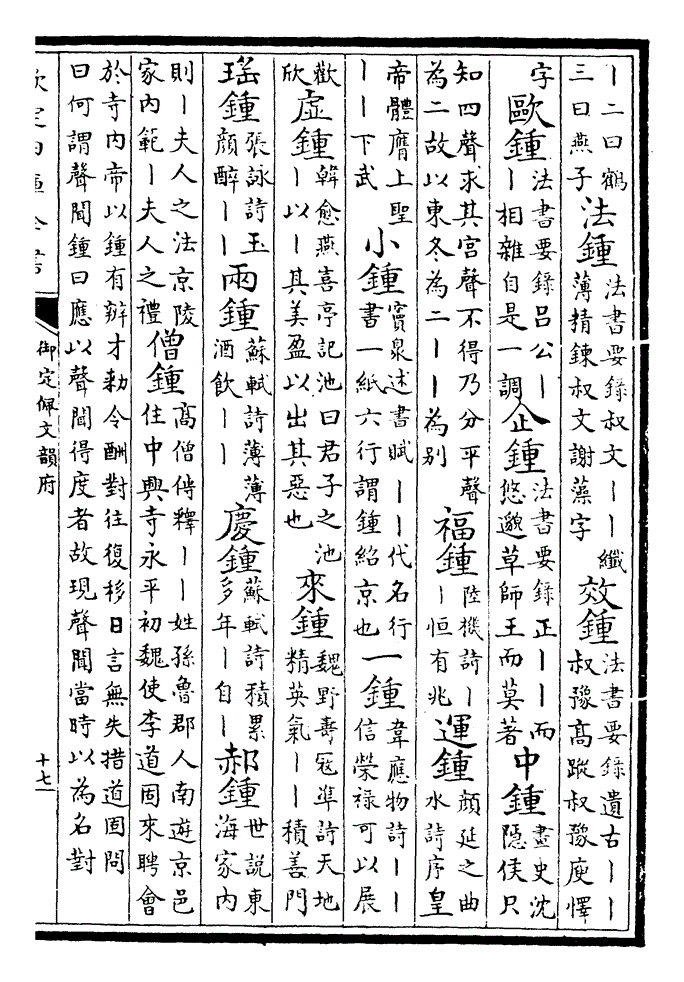 丨二曰鶴三曰燕子 法鍾 法書要錄叔文丨丨纖薄精鍊叔文謝藻字 效鍾 法書要錄遺古丨丨叔豫高蹤叔豫庾懌
字 歐鍾 法書要錄呂公丨丨相雜自是一調 企鍾 法書要錄正丨丨而悠邈草師王而莫著 中鍾 畫史沈隱侯只
知四聲求其宮聲不得乃分平聲為二故以東冬為二丨丨為别 福鍾 陸機詩丨丨恒有兆 運鍾 顔延之曲水詩序皇
帝體膺上聖丨丨下武 小鍾 竇臮述書賦丨丨代名行書一紙六行謂鍾紹京也 一鍾 韋應物詩丨丨信榮禄可以展
歡欣 虛鍾 韓愈燕喜亭記池曰君子之池丨以丨其美盈以出其惡也 來鍾 魏野壽冦準詩天地精英氣丨丨積善門
瑤鍾 張詠詩玉顔醉丨丨 兩鍾 蘇軾詩薄薄酒飲丨丨 慶鍾 蘇軾詩積累多年丨自丨 郝鍾 世説東海家内
則丨夫人之法京陵家内範丨夫人之禮 僧鍾 高僧傳釋丨丨姓孫魯郡人南遊京邑住中興寺永平初魏使李道固來聘會
於寺内帝以鍾有辨才勅令酬對往復移日言無失措道固問曰何謂聲聞鍾曰應以聲聞得度者故現聲聞當時以為名對
欽定四庫全書
御定佩文韻府
十七